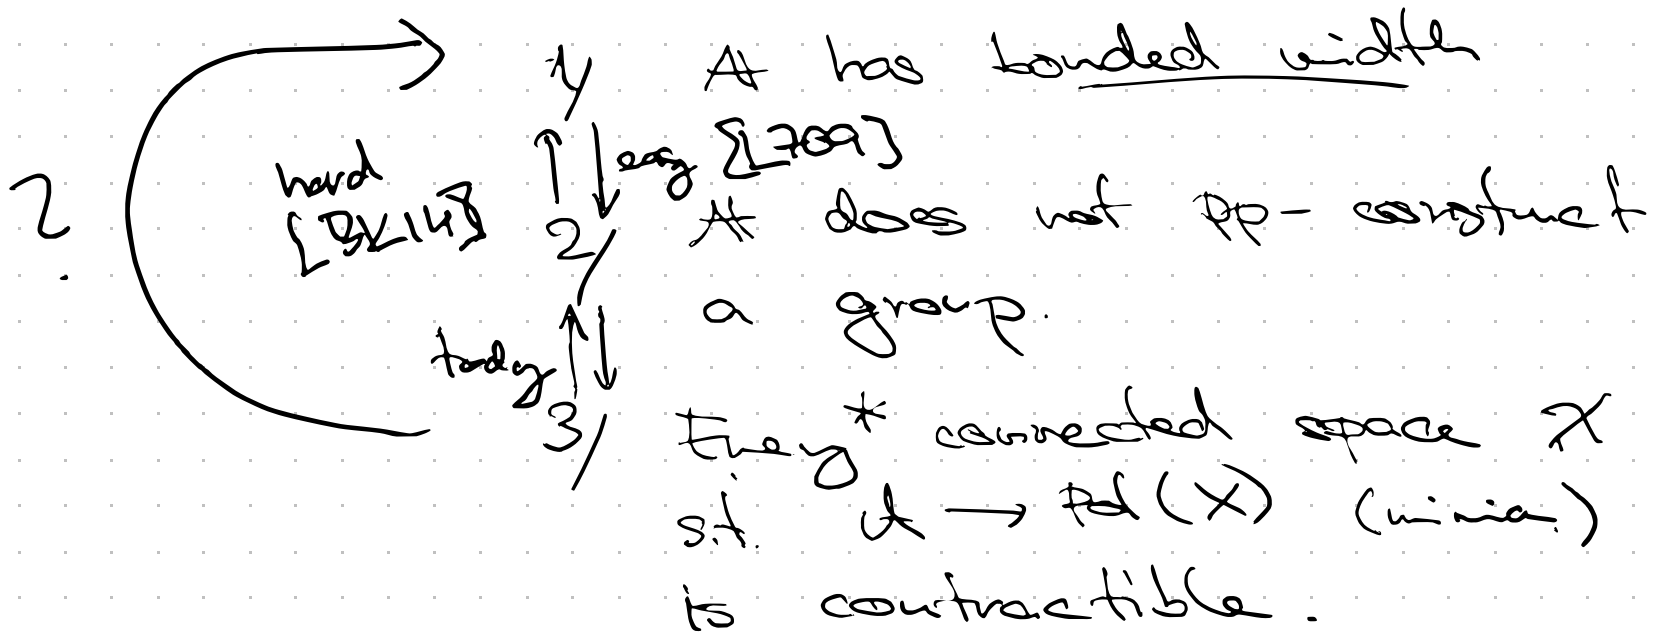 1/ A has bounded width
easy [LZ09]
hard [BK14]
?
2/ A does not pp-construct
a group.
today
3/ Every* connected space X
s.t. A → Pol(X) (minion)
is contractible.